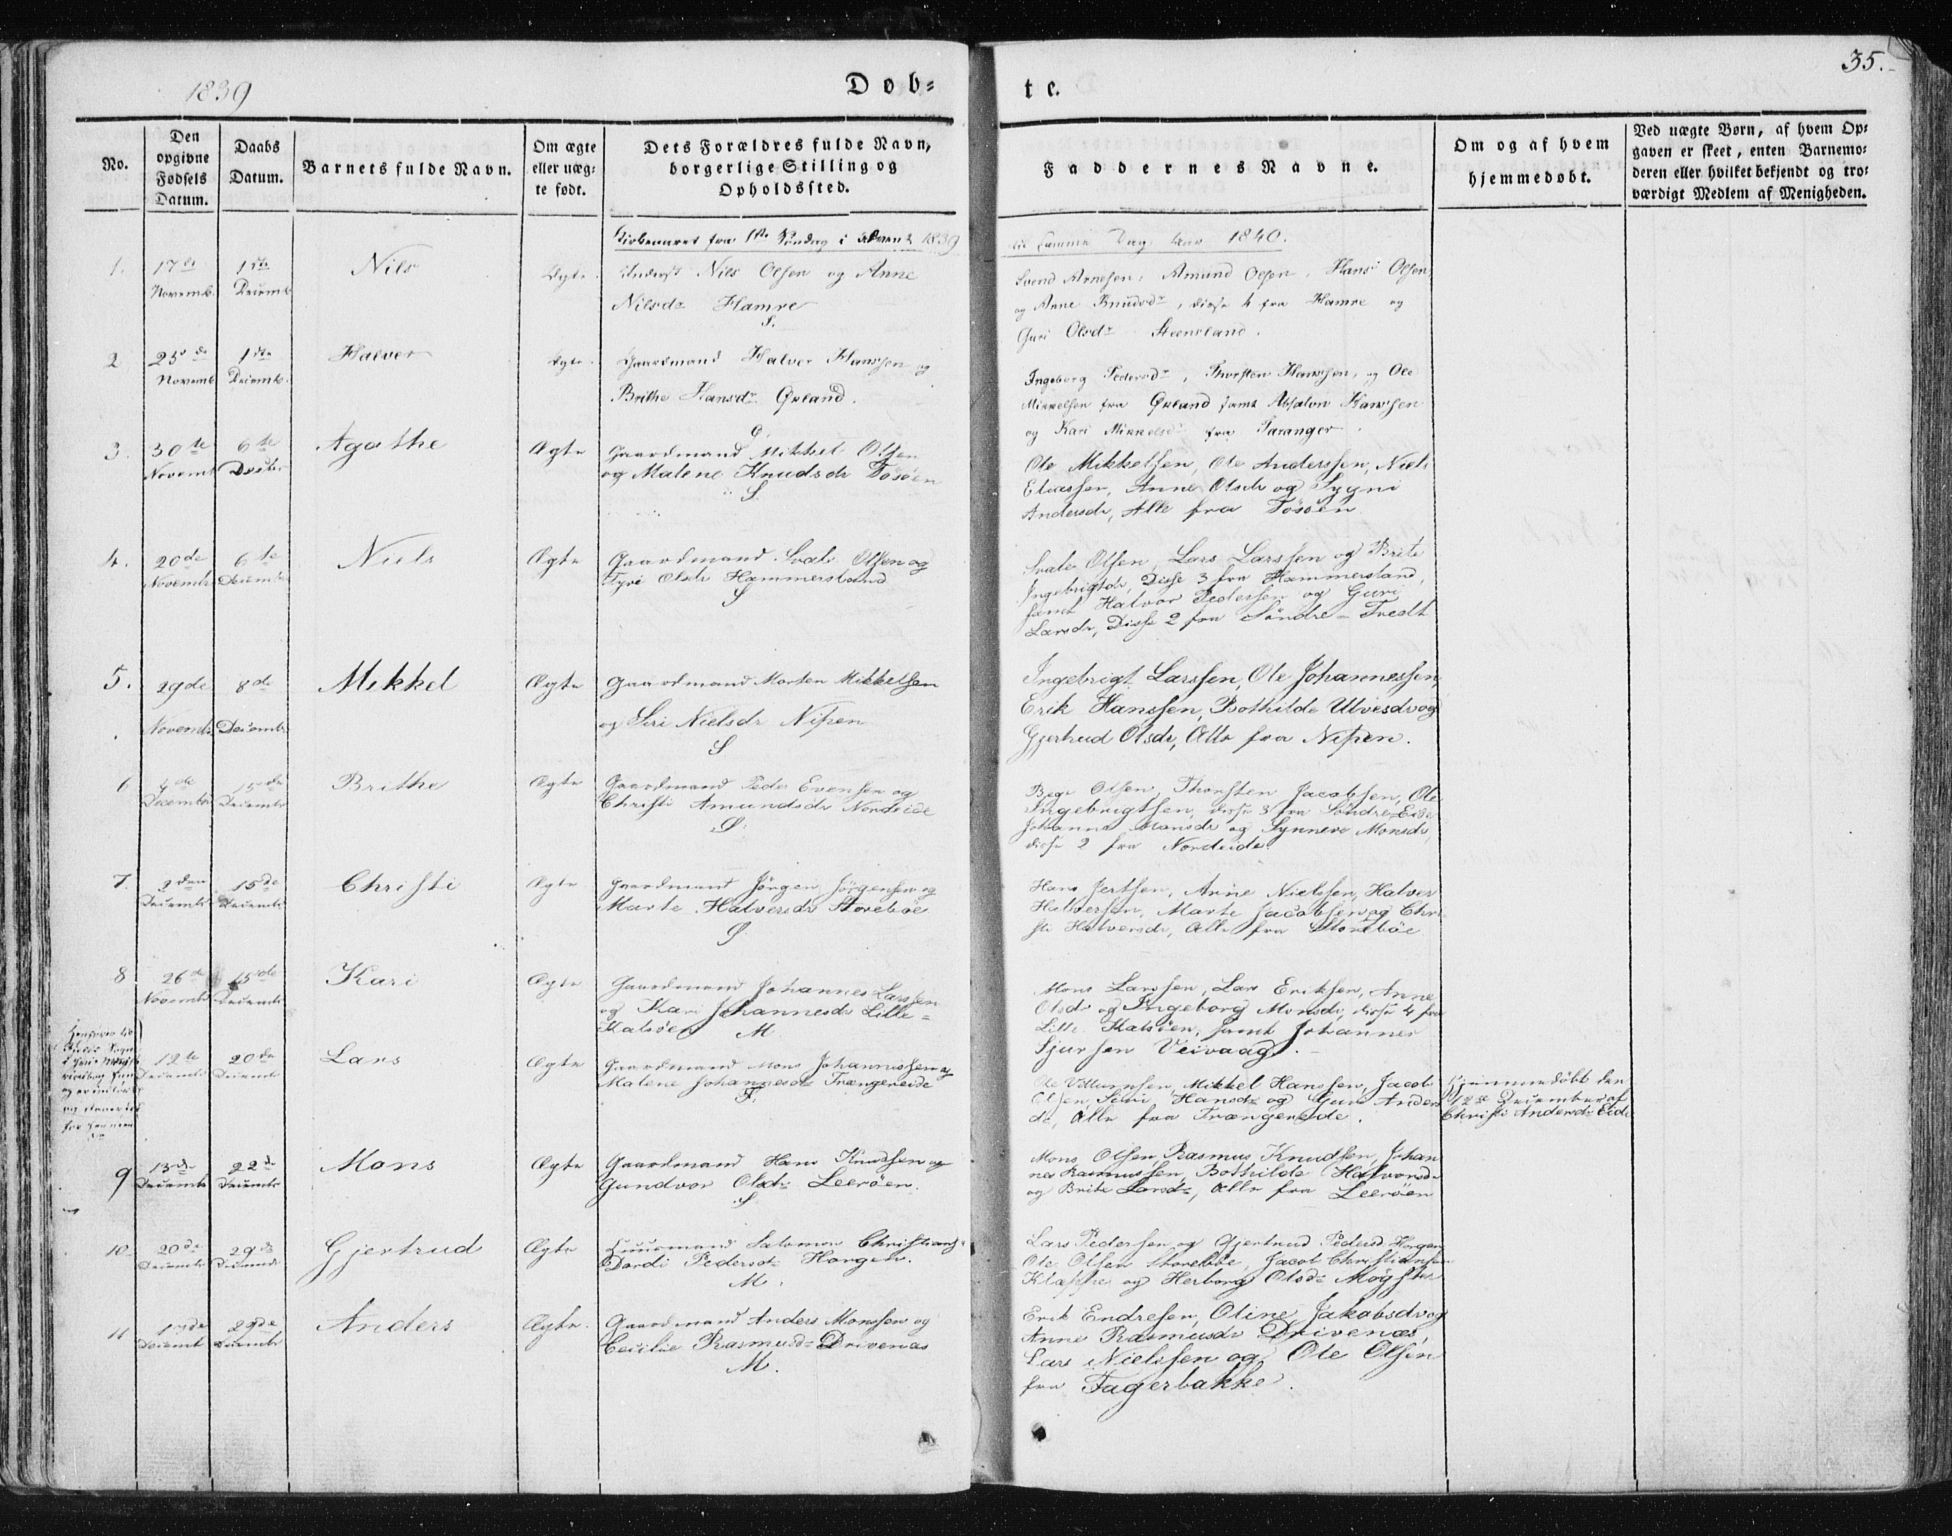 1839
Døb-
te.
35.
No.
Den opgivne Fødsels Datum.
Daabs Datum.
Barnets fulde Navn.
Om ægte eller uægte født.
Dets Forældres fulde Navn, borgerlige Stilling og Opholdssted.
Faddernes Navne.
Om og af hvem hjemmedøbt.
Ved uægte Børn, af hvem Opgaven er skeet, enten Barnemoderen eller hvilket bekjendt og troværdigt Medlem af Menigheden.
Kirkeaaret fra 1ste Søndag i Advent 1839
til samme Dag Aar 1840.
1. 17de Novemb. 1ste Decemb. Nils Ægte Nils Olsen og Anne
Nilsdr Hamre
S.
Svend Arnesen, Amund Olsen, Hans Olsen
og Anne Knudsdr, disse 4 fra Hamre og
Guri Olsdr Steensland.
2 25de Novemb 1ste Decemb. Halver Ægte. Gaardmand Halver Hanssen og
Brithe Hansdr Øvland.
Ingeborg Pedersdr, Thorsten Hanssen, og Ole
Mikkelsen fra Øvland samt Absalon Hanssen
og Kari Mikkelsdr fra Taranger.
3. 30te Novemb 6te Decbr Agathe Ægte Gaardmand Mikkel Olsen
og Malene Knudsdr Tøsøen
S
Ole Mikkelsen, Ole Anderssen, Niels
Eliassen, Anne Olsdr og Sygni
Andersdr, Alle fra Tøsøen
4. 20de Novembr 6te Decembr Niels Ægte Gaardmand Svale Olsen og
Olsdr Hammersland
S
Svale Olsen, Lars Larssen og Brite
Ingebrigtdr, Disse 3 fra Hammersland,
samt Halvor Pedersen og Guri
Larsdr, Disse 2 fra Søndre-Tvedt
5. 29de Novembr 8de Decembr Mikkel Ægte Gaardmand Morten Mikkelsen
og Siri Nielsdr Nipen
S
Ingebrigt Larssen, Ole Johannessen,
Erik Hanssen, Bothilde Ulvesdr og
Gjertrud Olsdr, Alle fra Nipen.
6 4de Decembr 15de Decembr Brithe Ægte Gaardmand Peder Evensen og
Christi Amundsdr Nordeide
S.
Olsen, Thorsten Jacobsen, Ole
Ingebrigtsen, disse 3 fra Søndre Eide
Johanne Monsdr og Synneve Monsdr,
disse 2 fra Nordeide.
7. 2den Decembr 15de Decembr Christi Ægte Gaardmand Jörgen Jörgensen og
Marte Halversdr Storeböe
S.
Hans Jertsen, Arne Nielssen, Halver
Halversen, Marte Jacobsen og Chri
sti Halversdr, Alle fra Storeböe
8 26de Novembr 15de Decembr Kari Ægte Gaardmand Johannes Larssen
og Kari Johannesdr Lille=
Kalsøe M
Mons Larssen, Lars Eriksen, Anne
Olsdr og Ingeborg Monsdr, disse 4 fra
Lille Kalsøen, samt Johannes
Sjursen Veivaag.
12te Decembr 20de Decembr Lars Ægte Gaardmand Mons Johannessen og
Malene Johannesdr Trængereide
F.
Ole Villumsen, Mikkel Hanssen, Jacob
Olsen, Siri Hansdr og Guri Anders
dr, Alle fra Trængereide.
Hjemmedöbt den
12te December af
Christi Andersdr Eide
9 13de Decembr 22de Decembr Mons Ægte Gaardmand Hans Knudssen og
Gundvor Olsdr Leeröen.
S
Mons Olsen, Rasmus Knudsen, Johan
nes Rasmussen, Bothilde Halvorsdr
og Brite Larsdr, Alle fra Leeröen
10. 20de Decembr 29de Decembr Gjertrud Ægte Huusmand Salomon Christians.
Dordi Pedersdr Horgen.
M.
Lars Pedersen og Gjertrud Pedersd Horgen,
Ole Olsen Storeböe, Jacob Christiansen
Klæppe og Herborg Olsdr Møgster
11 Decembr 29de Decembr Anders Ægte. Gaardmand Anders Monssen og
Cecilie Rasmusdr Drivenæs
M.
Erik Endresen, Oline Jakobsdr og
Anne Rasmusdr Drivenæs,
Lars Nielssen og Ole Olsen
fra Fagerbakke.